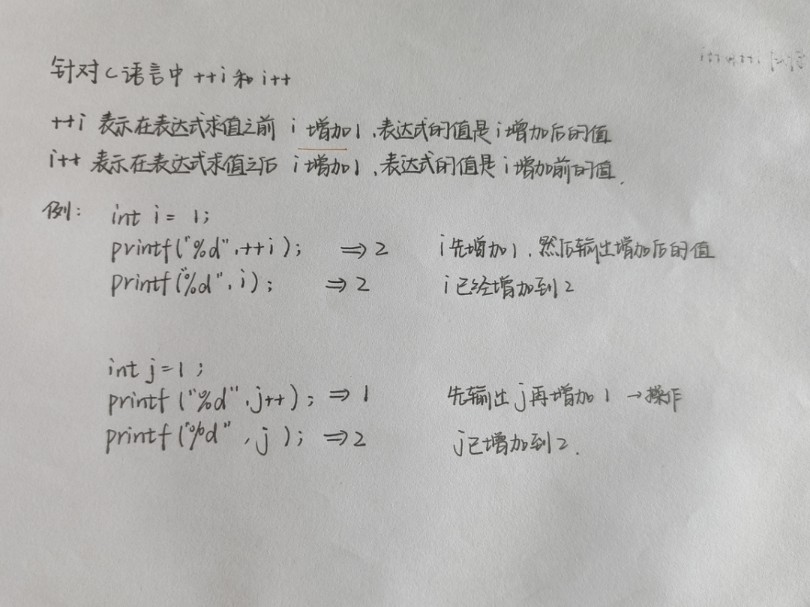 针对C语言中 ++i 和 i++
++i 表示在表达式求值之前 i 增加1,表达式的值是i增加后的值
i++ 表示在表达式求值之后 i 增加1,表达式的值是i增加前的值.
例: int i = 1;
printf("%d",++i); ⇒2 i先增加1,然后输出增加后的值
printf("%d",i); ⇒2 i已经增加到2
int j=1;
printf("%d",j++); ⇒1 先输出j再增加1 →操作
printf("%d",j); ⇒2 j已增加到2.